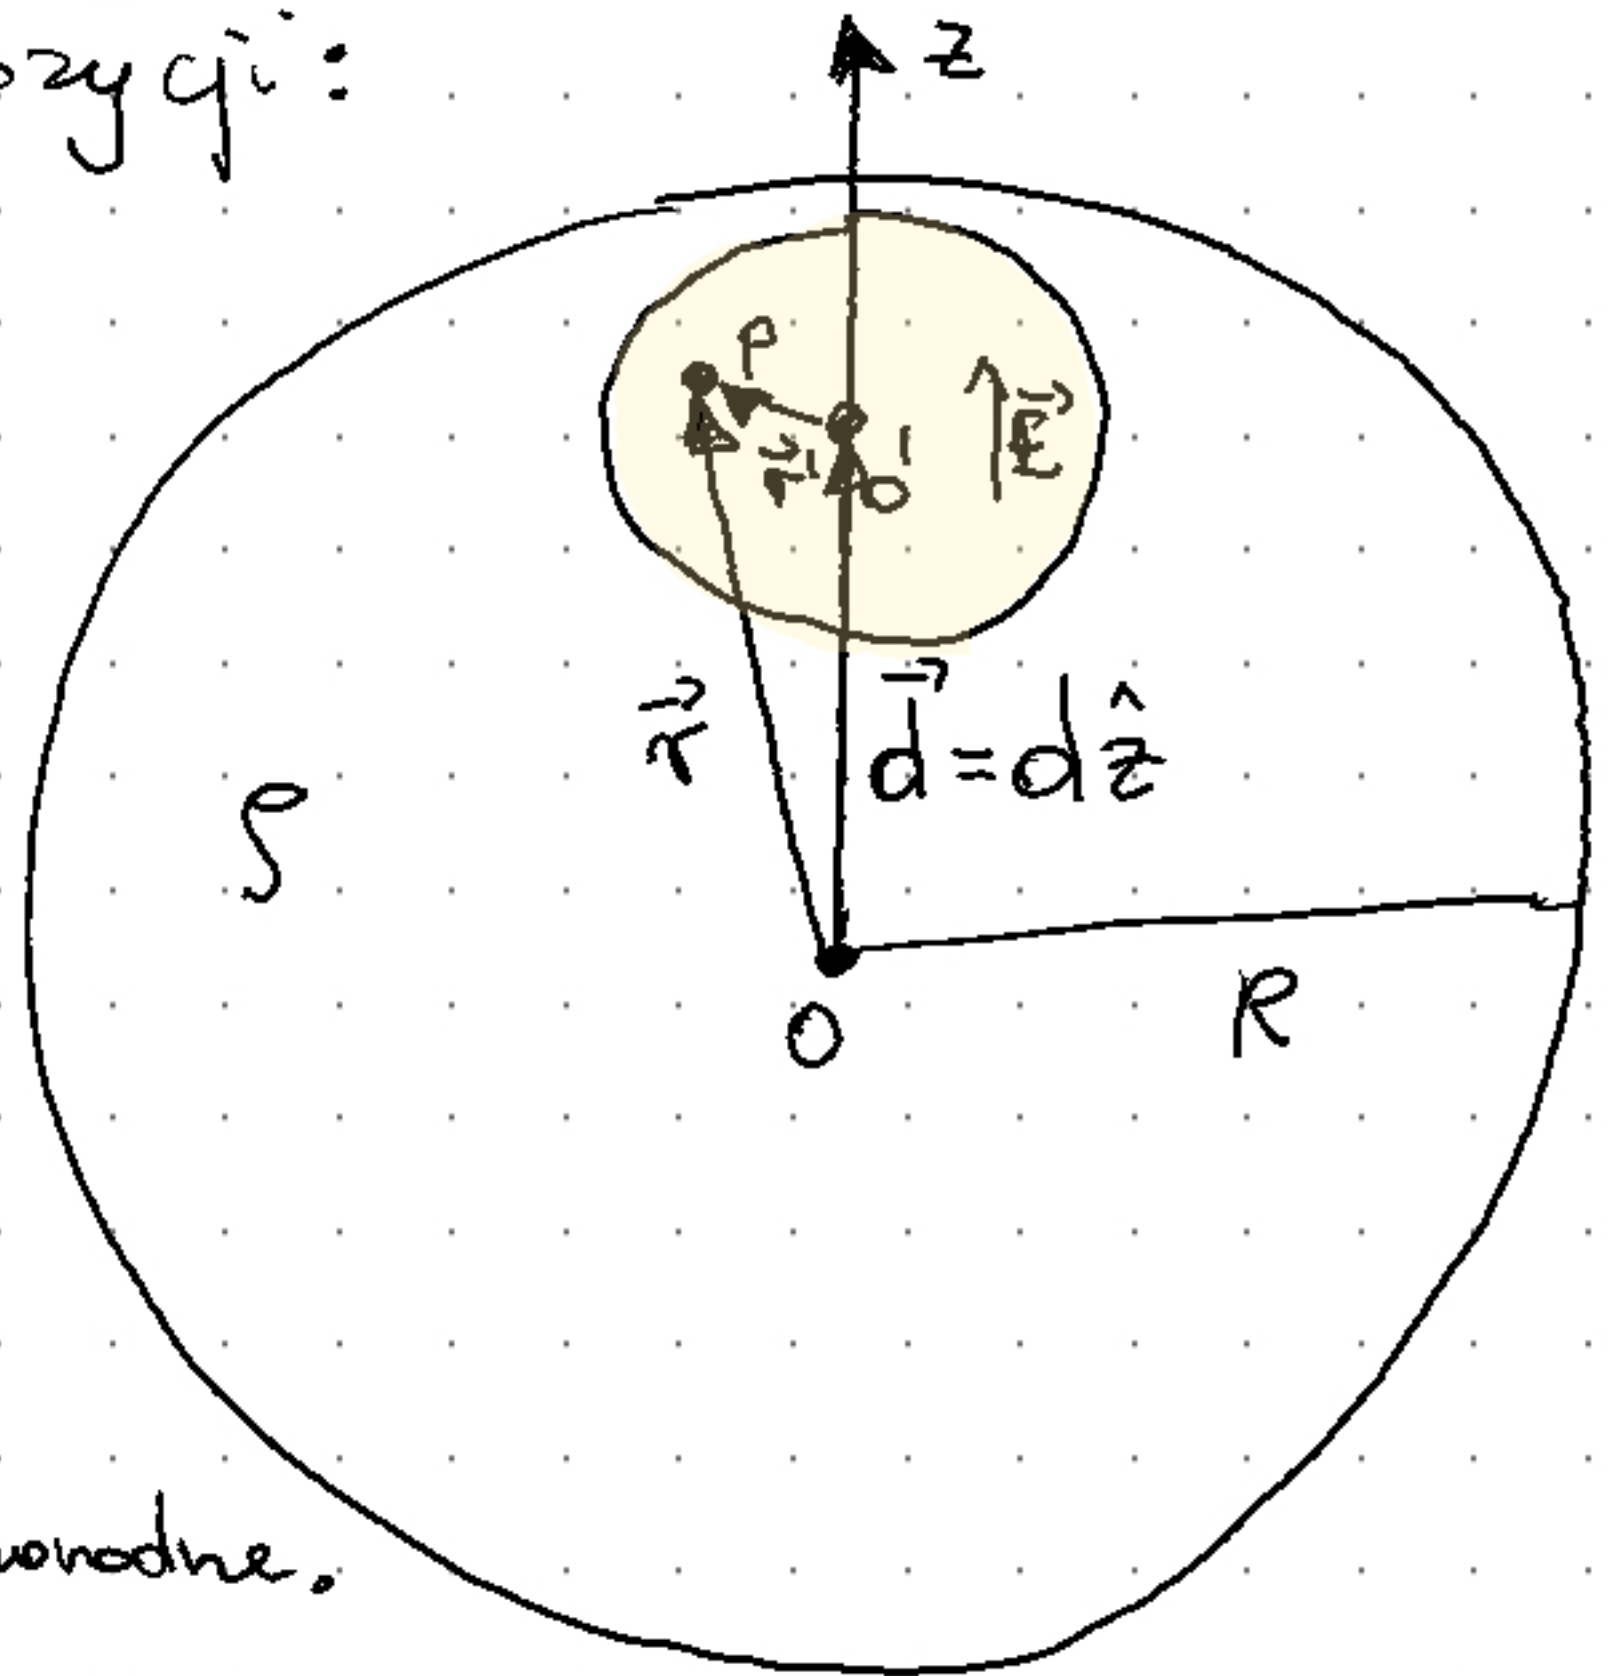 ozycji:
z
P
r⃗'
O'
E⃗
r⃗
d⃗ = dẑ
ρ
O
R
orodne.